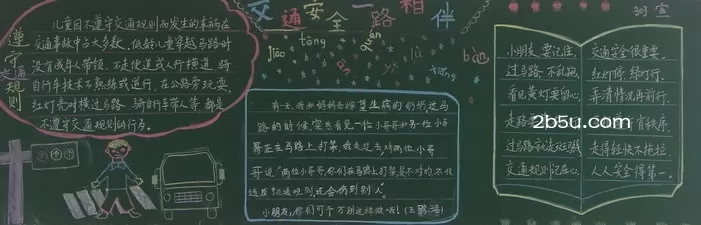 交通安全一路相伴
jiāo tōng ān quán yī lù xiāng bàn
303 宣
遵守交通规则
儿童因不遵守交通规则而发生的车祸在
交通事故中占大多数，低龄儿童穿越马路时
没有成年人带领，不走便道或人行横道，骑
自行车技术不熟练或逆行，在公路旁玩耍，
红灯亮时横过马路，骑自行车带人等，都是
不遵守交通规则的行为。
有一天，我和妈妈去探望生病的奶奶，过马
路的时候，突然看见一位小哥哥和另一位小
哥正在马路上打架，我走过去，对两位小哥
哥说："两位小哥哥，你们在马路上打架是不对的，不仅
违反交通规则，还会伤到别人。"
小朋友，你们可千万别这样做哦！
小朋友，要记住，
过马路，不乱跑，
看见黄灯要留心，
过马路
交通规则记在心，
交通安全很重要。
红灯停，绿灯行，
弄清情况再前行。
有秩序，
走得轻快不拖拉。
人人安全得第一。
2b5u.com